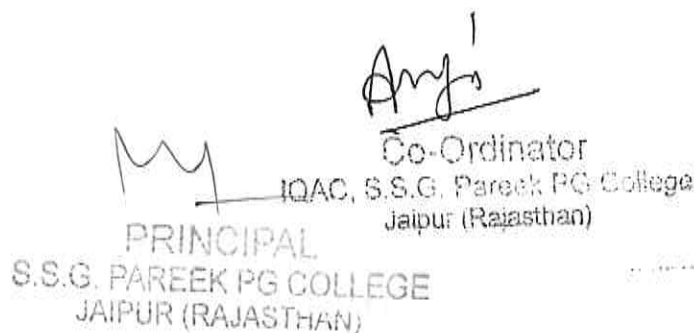 Co-Ordinator
IQAC, S.S.G. Pareek PG College
Jaipur (Rajasthan)
PRINCIPAL
S.S.G. PAREEK PG COLLEGE
JAIPUR (RAJASTHAN)